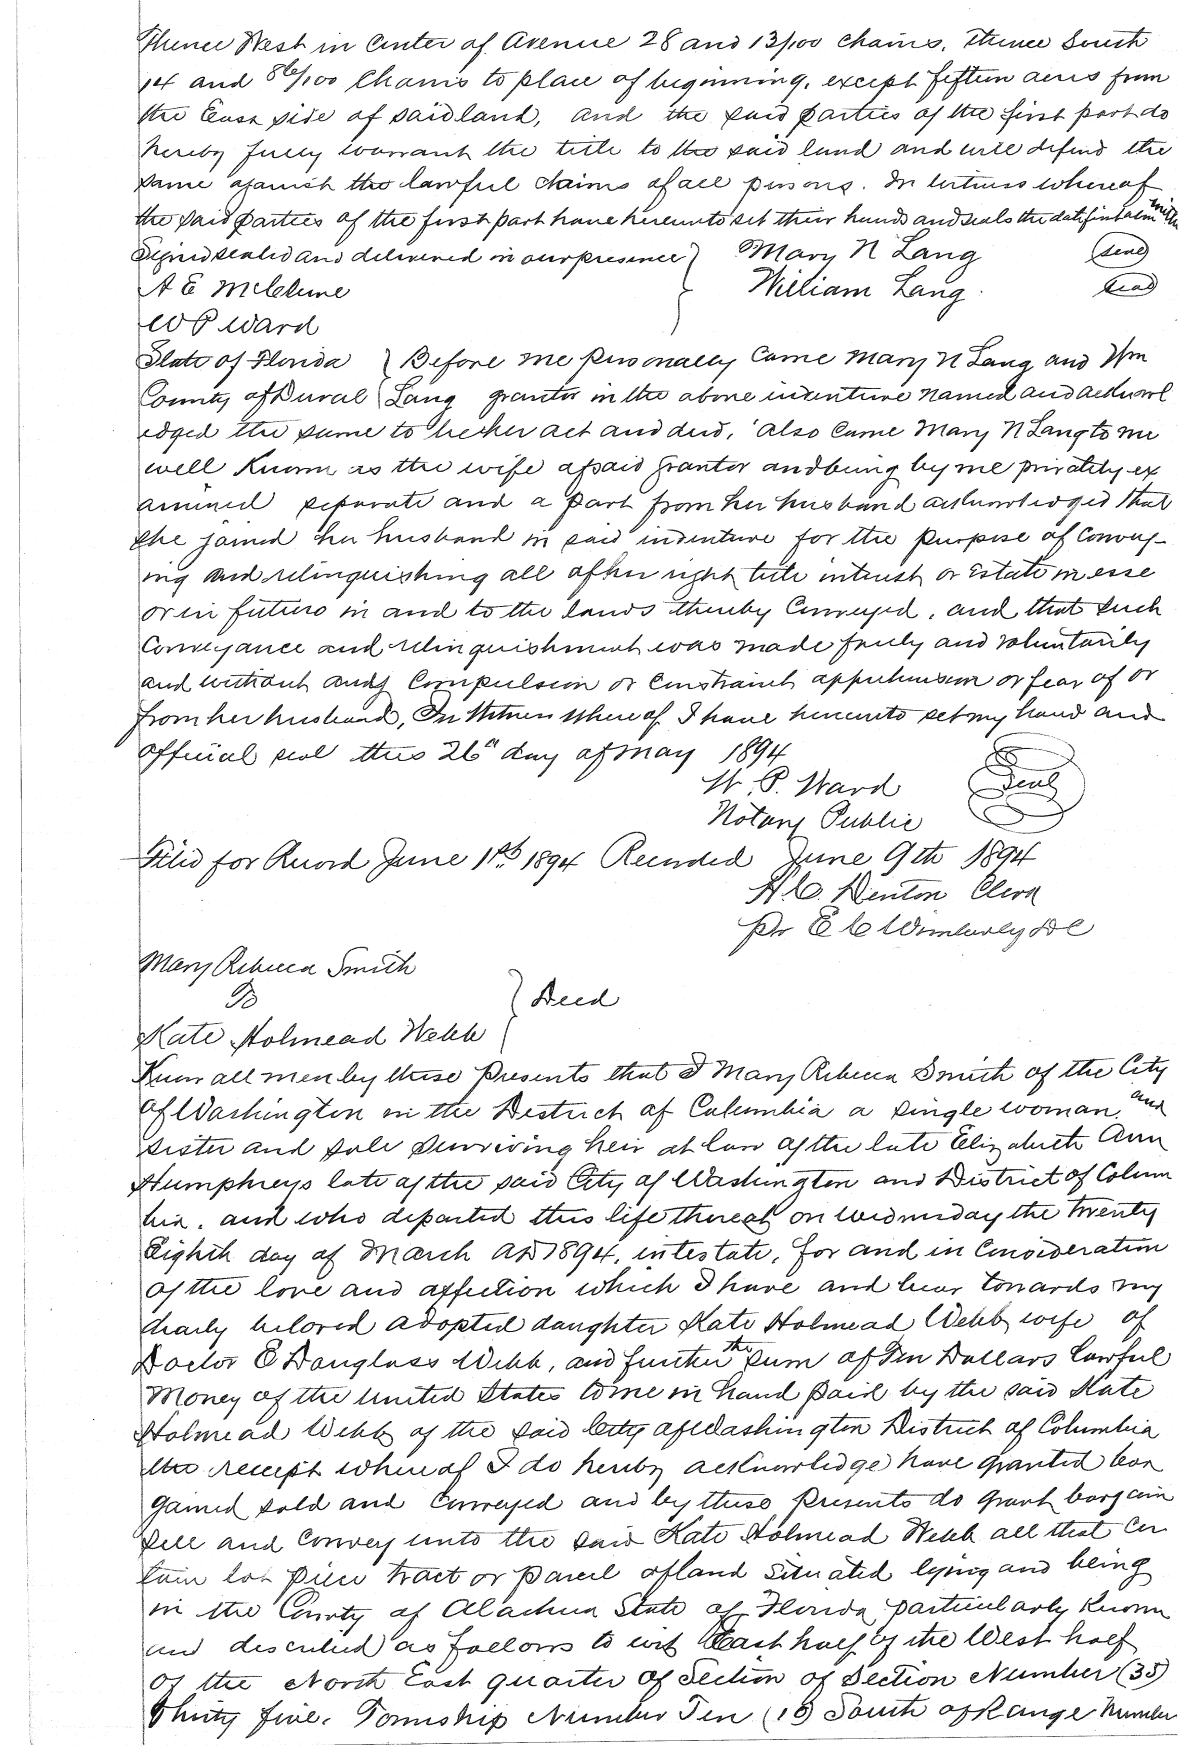 Thence West in Center of Avenue 28 and 13/100 Chains. Thence South
14 and 86/100 Chains to place of beginning, except fifteen acres from
the East side of said land, and the said parties of the first part do
hereby fully warrant the title to the said land and will defend the
same against the lawful claims of all persons. In witness whereof
the said parties of the first part have hereunto set their hands and seals the date first above written
Signed sealed and delivered in our presence } Mary N Lang (seal)
A E McClure } William Lang. (seal)
W P Ward
State of Florida } Before me personally Came Mary N Lang and Wm
County of Duval } Lang grantor in the above indenture named and acknowl
edged the same to be her act and deed, also Came Mary N Lang to me
well Known as the wife of said grantor and being by me privately ex
amined separate and a part from her husband acknowledged that
she joined her husband in said indenture for the purpose of Convey-
ing and relinquishing all of her right title interest or Estate in esse
or in futuro in and to the lands thereby Conveyed, and that such
Conveyance and relinquishment was made freely and voluntarily
and without any Compulsion or Constraint apprehension or fear of or
from her husband, In Witness Whereof I have hereunto set my hand and
official seal this 26th day of May 1894
W. P. Ward (Seal)
Notary Public
Filed for Record June 1st 1894 Recorded June 9th 1894
H. C. Denton Clerk
Pr E C Wimberly DC
Mary Rebecca Smith
To } Deed
Kate Holmead Webb
Know all men by these Presents that I Mary Rebecca Smith of the City
of Washington in the District of Columbia a single woman, and
sister and sole surviving heir at law of the late Elizabeth Ann
Humphreys late of the said City of Washington and District of Colum
bia, and who departed this life thereat on Wednesday the twenty
Eighth day of March AD 1894, intestate, for and in Consideration
of the love and affection which I have and bear towards my
dearly beloved adopted daughter Kate Holmead Webb wife of
Doctor E Douglass Webb, and further the sum of Ten Dollars lawful
Money of the United States to me in hand paid by the said Kate
Holmead Webb of the said City of Washington District of Columbia
the receipt whereof I do hereby acknowledge have granted bar
gained sold and Conveyed and by these presents do grant bargain
sell and Convey unto the said Kate Holmead Webb all that Cer
tain lot piece tract or parcel of land situated lying and being
in the County of Alachua State of Florida particularly Known
and described as follows to wit East half of the West half
of the North East quarter of Section of Section Number (35)
Thirty five, Township Number Ten (10) South of Range Number